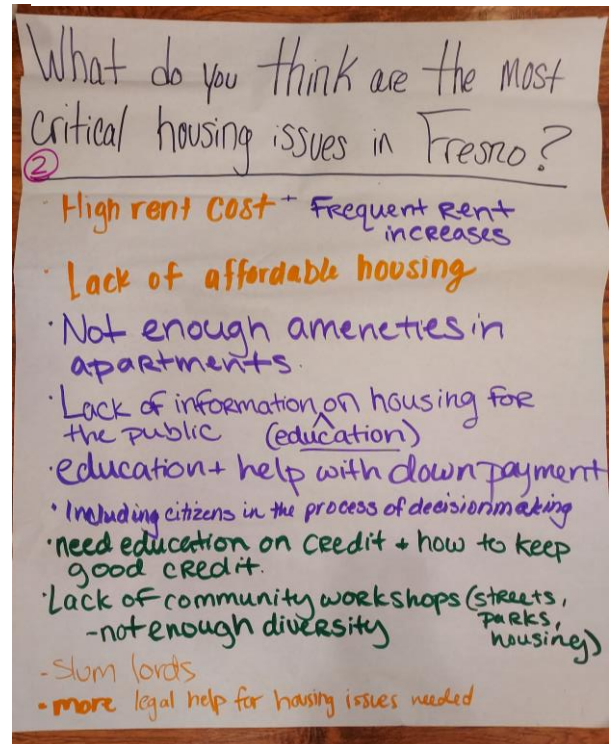 What do you think are the most
critical housing issues in Fresno?
2
· High rent cost + Frequent Rent
increases
· Lack of affordable housing
· Not enough ameneties in
apartments.
· Lack of information ^ on housing for
the public (education)
· education + help with down payment
· Including citizens in the process of decisionmaking
· need education on credit + how to keep
good credit.
· Lack of community workshops (streets,
parks,
- not enough diversity
housing)
- slum lords
- more legal help for housing issues needed